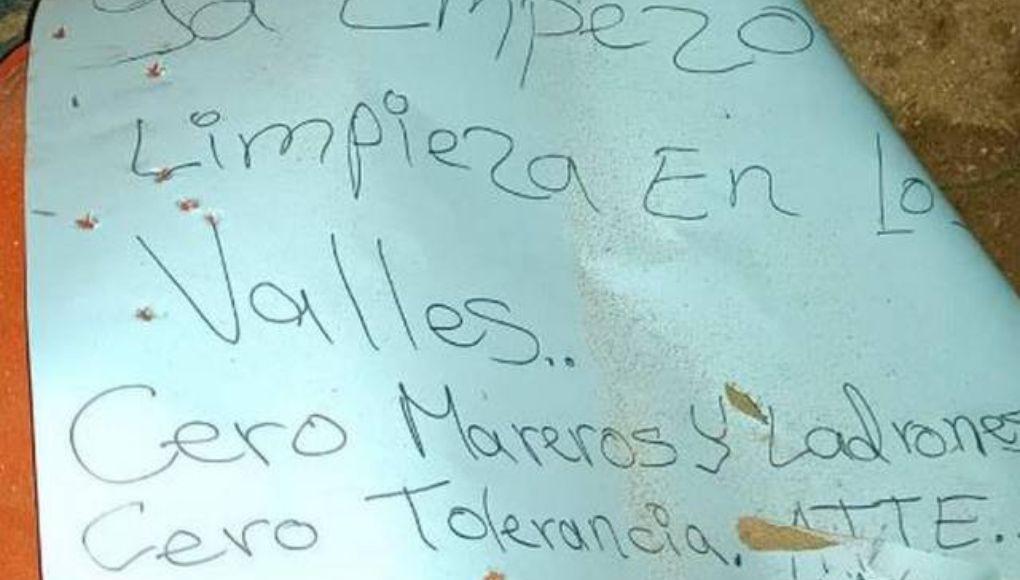 Ya Empezo
Limpieza En Lo
Valles..
Cero Mareros y Ladrones
Cero Tolerancia. ATTE..